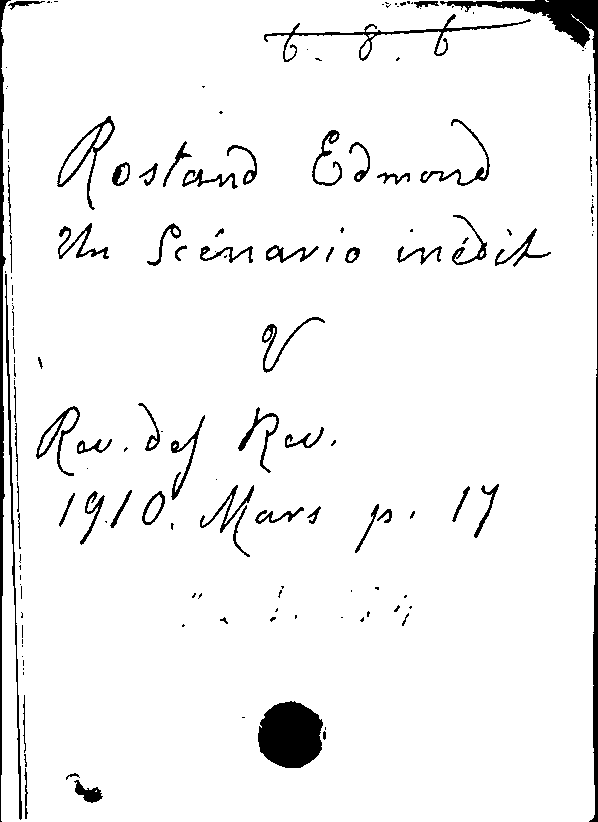 6. 8. 6
Rostand Edmond
Un Scénario inédit
V
Rev. des Rev.
1910. Mars p. 17